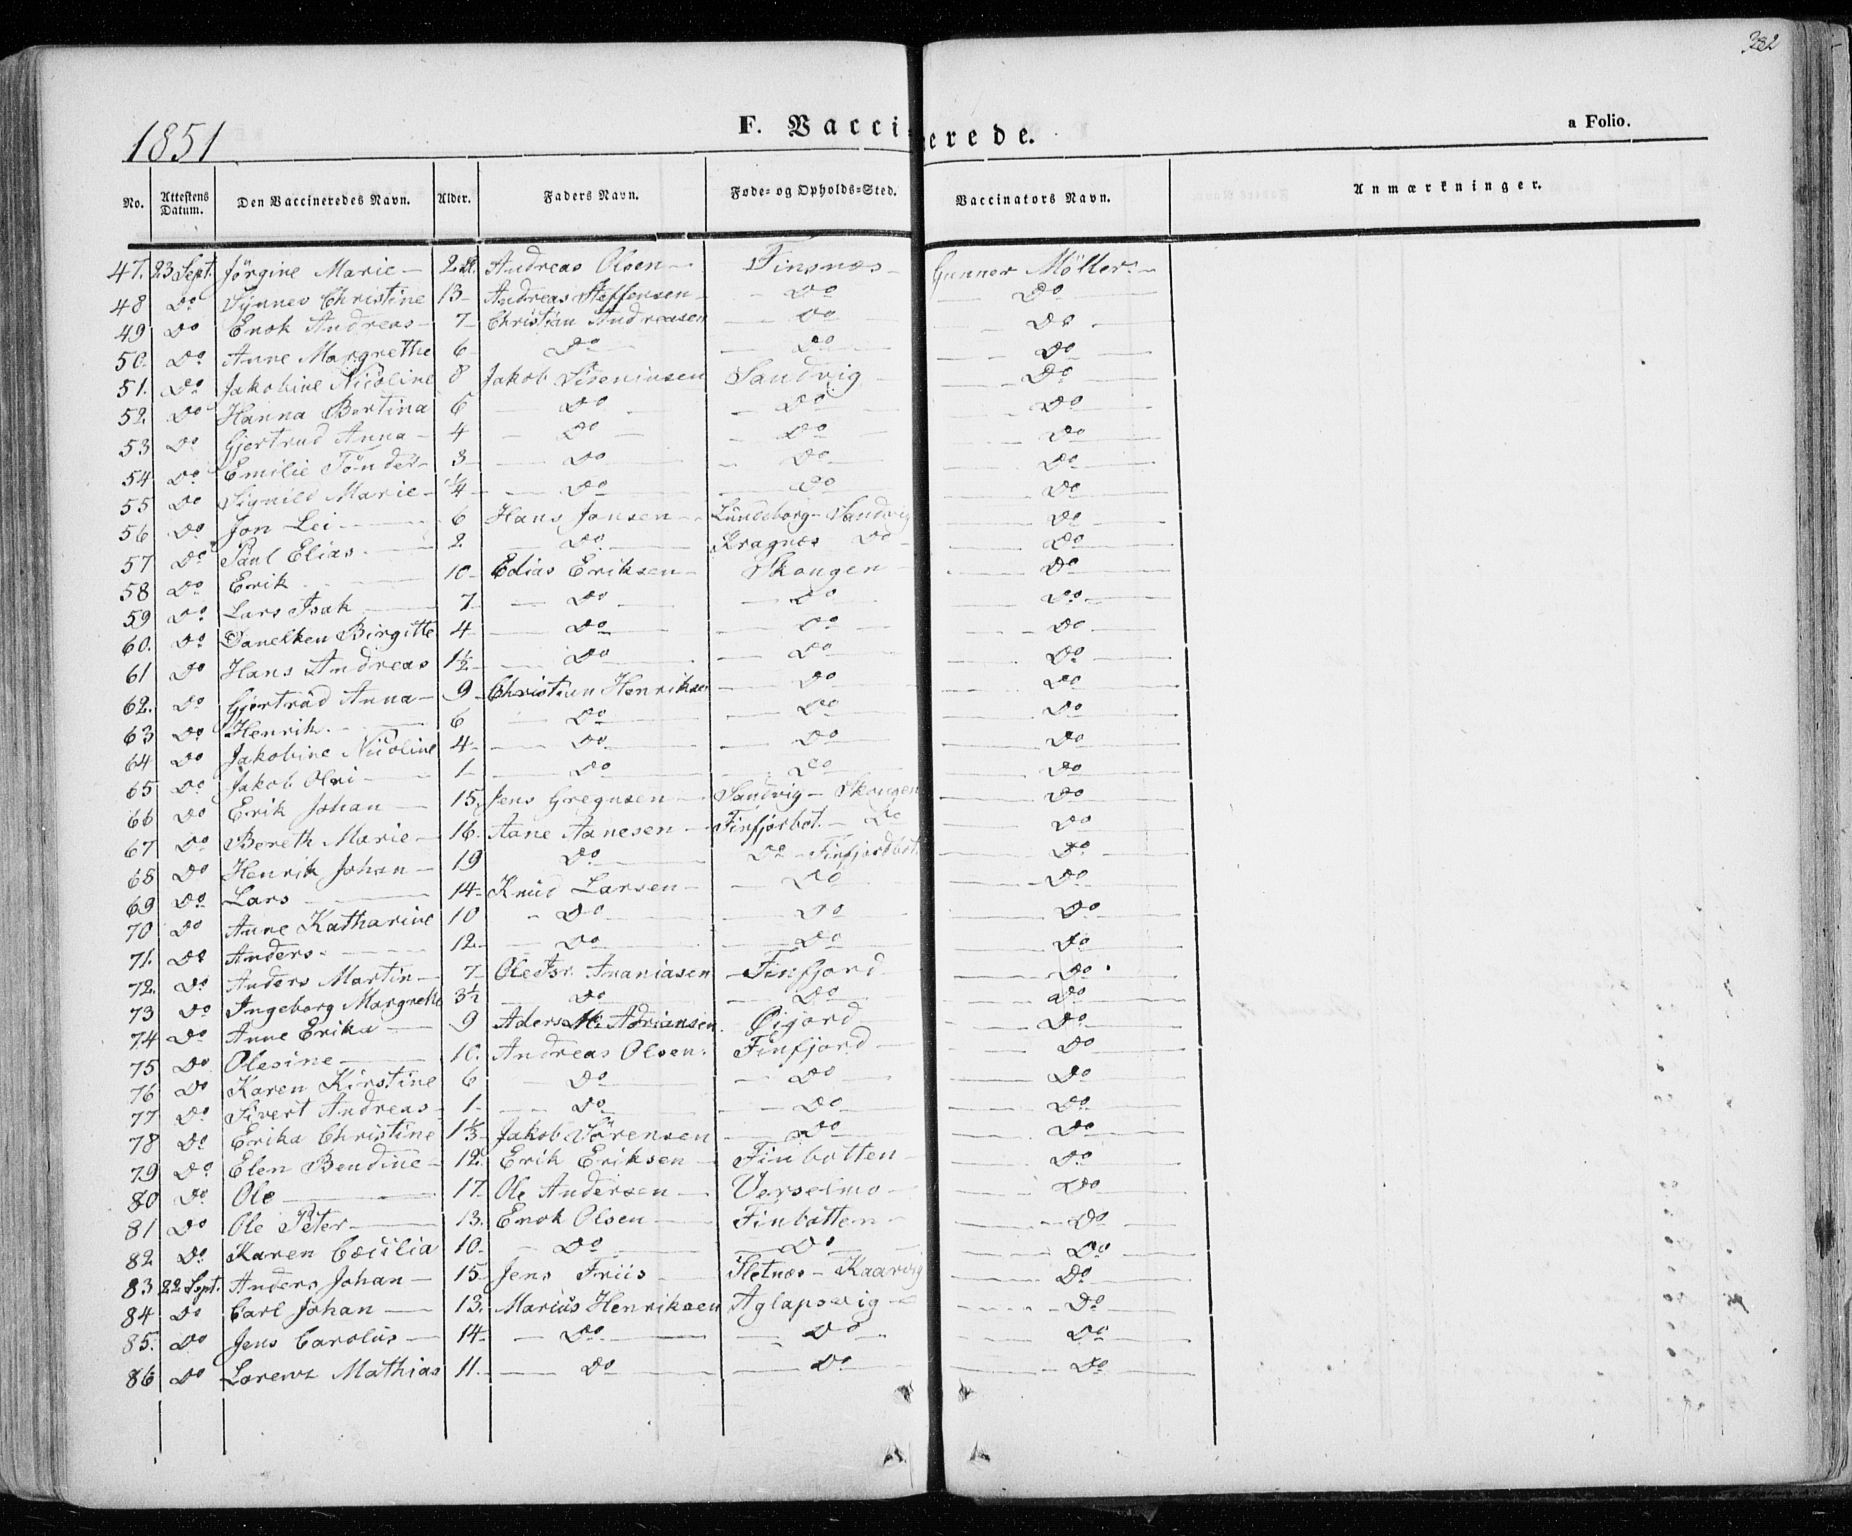 382
1851 F. Vaccinerede. a Folio.
No. Attestens Datum. Den Vaccineredes Navn. Alder. Faders Navn. Føde- og Opholds-Sted. Vaccinators Navn. Anmærkninger.
47. 23 Sept. Jørgine Marie 2 Andreas Olsen Finsnæs Gunner Møller
48 Do Synnev Christine 13 Andreas Steffensen Do Do
49 Do Enok Andreas 7 Christian Andreasen Do Do
50. Do Anne Margrethe 6 Do Do Do
51. Do Jakobine Nicoline 8 Jakob Sandvig Do
52. Do Hanna Bertina 6 Do Do Do
53 Do Gjertrud Anna 4 Do Do Do
54 Do Emilie Tønder 3 Do Do Do
55 Do Signild Marie 1/4 Do Do Do
56 Do Jon Lei 6 Hans Jonsen Lundeborg - Sandvig Do
57 Do Paul Elias 2 Do Kragnæs Do Do
58 Do Erik 10 Edias Eriksen Skougen Do
59 Do Lars Isak 7 Do Do Do
60. Do Danelken Birgitte 4 Do Do Do
61 Do Hans Andreas 1 1/2 Do Do Do
62. Do Gjertrud Anna 9 Christian Henriksen Do Do
63 Do Henrik 6 Do Do Do
64 Do Jakobine Nicoline 4 Do Do Do
65 Do Jakob 1 Do Do Do
66 Do Erik Johan 15. Jens Gregusen Sandvig - Skougen Do
67 Do Bereth Marie 16. Aane Aanesen Finfjorbot. Do Do
68 Do Henrik Johan 19 Do Do - Finfjordbot. Do
69 Do Lars 14 Knud Larsen Do Do
70 Do Anne Katharine 10 Do Do Do
71. Do Anders 12 Do Do Do
72. Do Anders Martin 7 Ole Isr. Ananiasen Finfjord Do
73 Do Ingeborg Margrethe 3 1/2 Do Do Do
74 Do Anne Erika 9 Aders M. Adriansen Øijord Do
75 Do Olesine 10. Andreas Olsen Finfjord Do
76 Do Karen Kirstine 6 Do Do Do
77 Do Sivert Andreas 1 Do Do Do
78 Do Erika Christine 1 1/3 Jakob Sørensen Do Do
79 Do Elen Bendine 12. Erik Eriksen Finbotten Do
80 Do Ole 17. Ole Andersen Vasselmo Do
81 Do Ole Peter 13. Enok Olsen Finbotten Do
82 Do Karen Cæcilia 10 Do Do Do
83 22 Sept. Anders Johan 15 Jens Friis Fletnæs - Kaarvig Do
84 Do Carl Johan 13. Marius Henriksen Aglapsvig Do
85. Do Jens Carolus 14 Do Do Do
86 Do Lorenz Mathias 11. Do Do Do